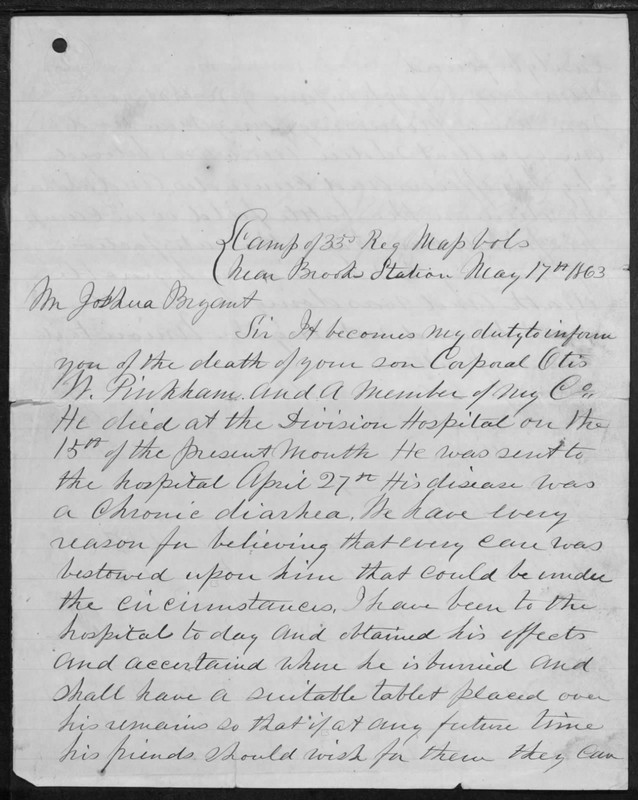 Camp of 33d Reg Mass Vols
Near Brooks Station May 17th 1863
Mr Joshua Bryant
Sir It becomes my duty to inform
you of the death of your son Corporal Otis
W. Pinkham. and a member of my Co.
He died at the Division Hospital on the
15th of the present Month He was sent to
the hospital April 27th His disease was
a Chronic diarhea, We have every
reason for believing that every care was
bestowed upon him that could be under
the circimstances, I have been to the
hospital to day and obtained his effects
and accertaind where he is burried and
shall have a suitable tablet placed over
his remains so that if at any future time
his friends should wish for them they can